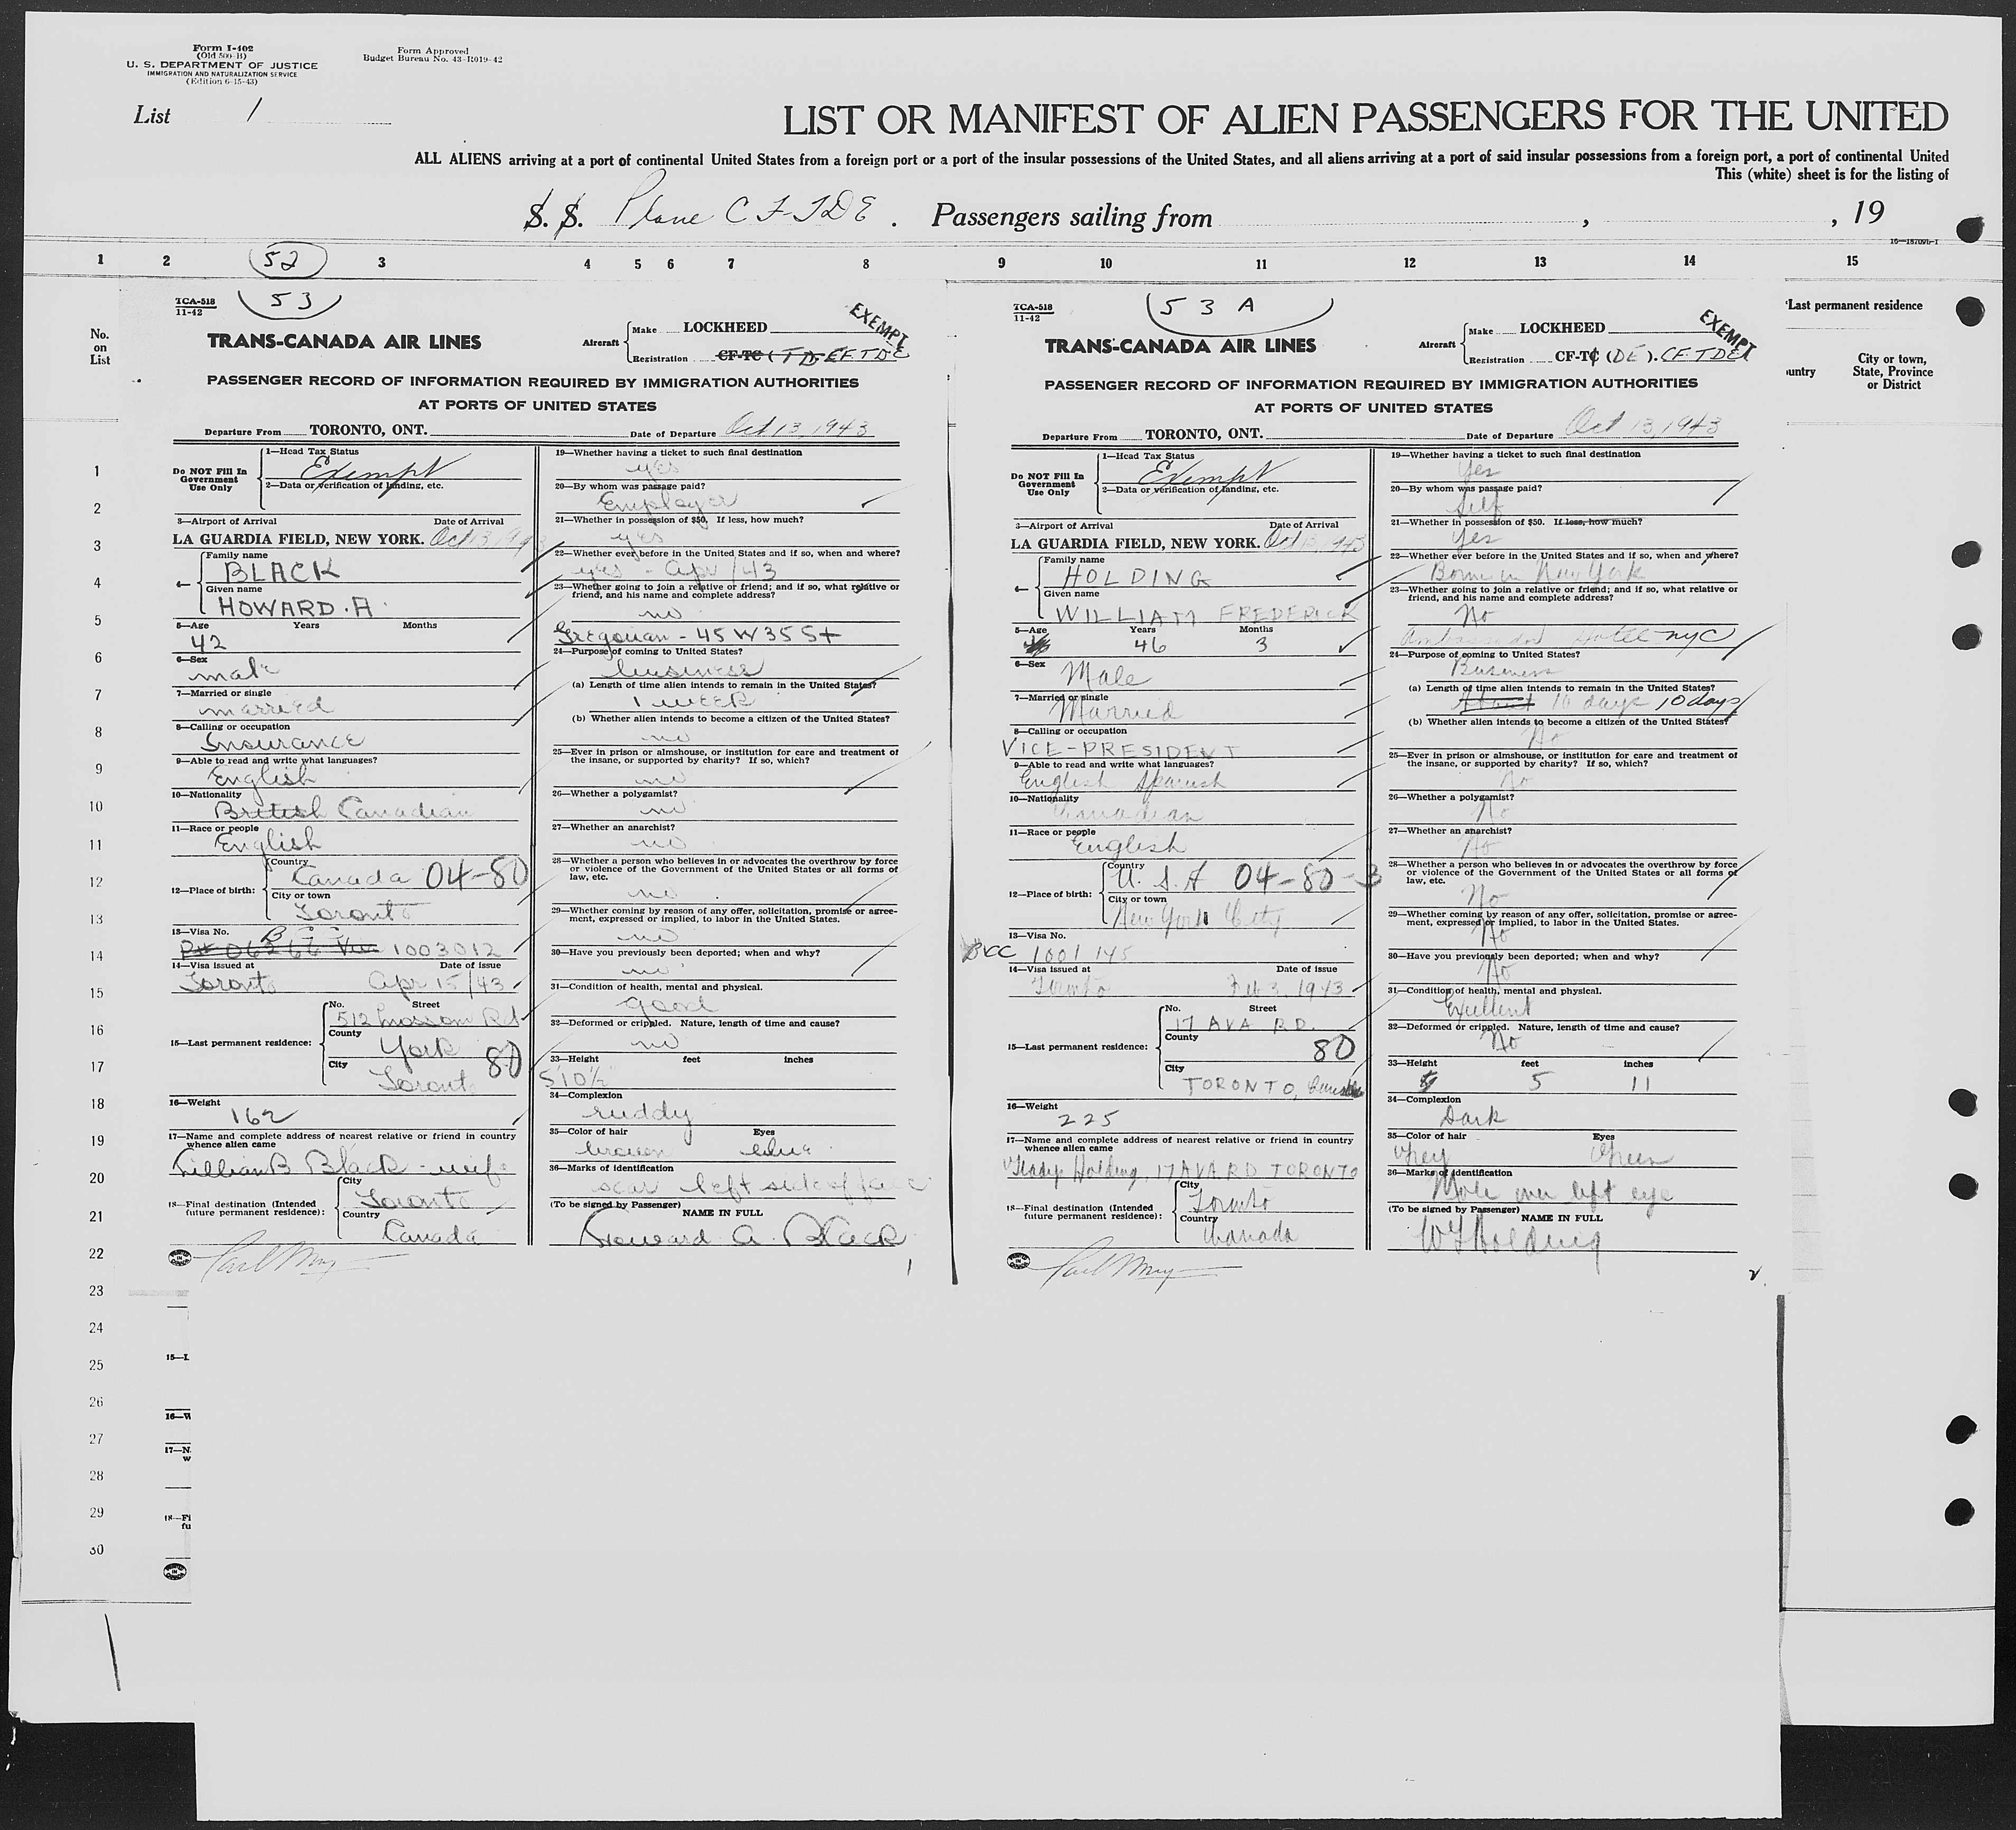 Form I-402
(Old 500-B)
U. S. DEPARTMENT OF JUSTICE
IMMIGRATION AND NATURALIZATION SERVICE
(Edition 6-15-43)
Form Approved
Budget Bureau No. 43-R019-42
List 1
LIST OR MANIFEST OF ALIEN PASSENGERS FOR THE UNITED
ALL ALIENS arriving at a port of continental United States from a foreign port or a port of the insular possessions of the United States, and all aliens arriving at a port of said insular possessions from a foreign port, a port of continental United
This (white) sheet is for the listing of
S. S. Plane CF-TDE . Passengers sailing from , , 19
1 2 52 3 4 5 6 7 8 9 10 11 12 13 14 15
No.
on
List
1
2
3
4
5
6
7
8
9
10
11
12
13
14
15
16
17
18
19
20
21
22
23
24
25
26
27
28
29
30
TCA-518
11-42
53
EXEMPT
TRANS-CANADA AIR LINES
Aircraft
Make LOCKHEED
Registration CF-TC (TD CF TDE
PASSENGER RECORD OF INFORMATION REQUIRED BY IMMIGRATION AUTHORITIES
AT PORTS OF UNITED STATES
Departure From TORONTO, ONT. Date of Departure Oct 13, 1943
Do NOT Fill In
Government
Use Only
1—Head Tax Status
Exempt
2—Data or verification of landing, etc.
3—Airport of Arrival Date of Arrival
LA GUARDIA FIELD, NEW YORK. Oct 13
4—
Family name
BLACK
Given name
HOWARD. A.
5—Age Years Months
42
6—Sex
male
7—Married or single
married
8—Calling or occupation
Insurance
9—Able to read and write what languages?
English
10—Nationality
British Canadian
11—Race or people
English
12—Place of birth:
Country
Canada 04-80
City or town
Toronto
13—Visa No.
1003012
14—Visa issued at Date of issue
Toronto Apr 15/43
15—Last permanent residence:
No. Street
512 Rd
County
York
City 80
Toronto
16—Weight
162
17—Name and complete address of nearest relative or friend in country
whence alien came
Lillian B Black - wife
18—Final destination (Intended
future permanent residence):
City
Toronto
Country
Canada
19—Whether having a ticket to such final destination
yes
20—By whom was passage paid?
Employer
21—Whether in possession of $50. If less, how much?
yes
22—Whether ever before in the United States and if so, when and where?
yes - Apr /43
23—Whether going to join a relative or friend; and if so, what relative or
friend, and his name and complete address?
no
Gregorian - 45 W 35 St
24—Purpose of coming to United States?
business
(a) Length of time alien intends to remain in the United States?
1 week
(b) Whether alien intends to become a citizen of the United States?
no
25—Ever in prison or almshouse, or institution for care and treatment of
the insane, or supported by charity? If so, which?
no
26—Whether a polygamist?
no
27—Whether an anarchist?
no
28—Whether a person who believes in or advocates the overthrow by force
or violence of the Government of the United States or all forms of
law, etc.
no
29—Whether coming by reason of any offer, solicitation, promise or agree-
ment, expressed or implied, to labor in the United States.
no
30—Have you previously been deported; when and why?
no
31—Condition of health, mental and physical.
good
32—Deformed or crippled. Nature, length of time and cause?
no
33—Height feet inches
5 10½
34—Complexion
ruddy
35—Color of hair Eyes
brown blue
36—Marks of identification
scar left side of face
(To be signed by Passenger)
NAME IN FULL
Howard A. Black
1
TCA-518
11-42
53 A
EXEMPT
TRANS-CANADA AIR LINES
Aircraft
Make LOCKHEED
Registration CF-TC (DE). CF-TDE
PASSENGER RECORD OF INFORMATION REQUIRED BY IMMIGRATION AUTHORITIES
AT PORTS OF UNITED STATES
Departure From TORONTO, ONT. Date of Departure Oct 13, 1943
Do NOT Fill In
Government
Use Only
1—Head Tax Status
Exempt
2—Data or verification of landing, etc.
3—Airport of Arrival Date of Arrival
LA GUARDIA FIELD, NEW YORK. Oct 13, 1943
4—
Family name
HOLDING
Given name
WILLIAM FREDERICK
5—Age Years Months
46 3
6—Sex
Male
7—Married or single
Married
8—Calling or occupation
VICE-PRESIDENT
9—Able to read and write what languages?
English Spanish
10—Nationality
Canadian
11—Race or people
English
12—Place of birth:
Country
U. S. A 04-80-3
City or town
New York City
13—Visa No.
BCC 1001145
14—Visa issued at Date of issue
Toronto 1943
15—Last permanent residence:
No. Street
17 AVA RD.
County
80
City
TORONTO,
16—Weight
225
17—Name and complete address of nearest relative or friend in country
whence alien came
Gladys Holding, 17 AVA RD TORONTO
18—Final destination (Intended
future permanent residence):
City
Toronto
Country
Canada
19—Whether having a ticket to such final destination
Yes
20—By whom was passage paid?
Self
21—Whether in possession of $50. If less, how much?
Yes
22—Whether ever before in the United States and if so, when and where?
Born in New York
23—Whether going to join a relative or friend; and if so, what relative or
friend, and his name and complete address?
No
Ambassador Hotel NYC
24—Purpose of coming to United States?
Business
(a) Length of time alien intends to remain in the United States?
About 10 days 10 days
(b) Whether alien intends to become a citizen of the United States?
No
25—Ever in prison or almshouse, or institution for care and treatment of
the insane, or supported by charity? If so, which?
No
26—Whether a polygamist?
No
27—Whether an anarchist?
No
28—Whether a person who believes in or advocates the overthrow by force
or violence of the Government of the United States or all forms of
law, etc.
No
29—Whether coming by reason of any offer, solicitation, promise or agree-
ment, expressed or implied, to labor in the United States.
No
30—Have you previously been deported; when and why?
No
31—Condition of health, mental and physical.
Excellent
32—Deformed or crippled. Nature, length of time and cause?
No
33—Height feet inches
5 11
34—Complexion
Dark
35—Color of hair Eyes
Grey Green
36—Marks of identification
Mole over left eye
(To be signed by Passenger)
NAME IN FULL
WF Holding
2
Last permanent residence
untry
City or town,
State, Province
or District
15—L
16—W
17—N
w
18—Fi
fu